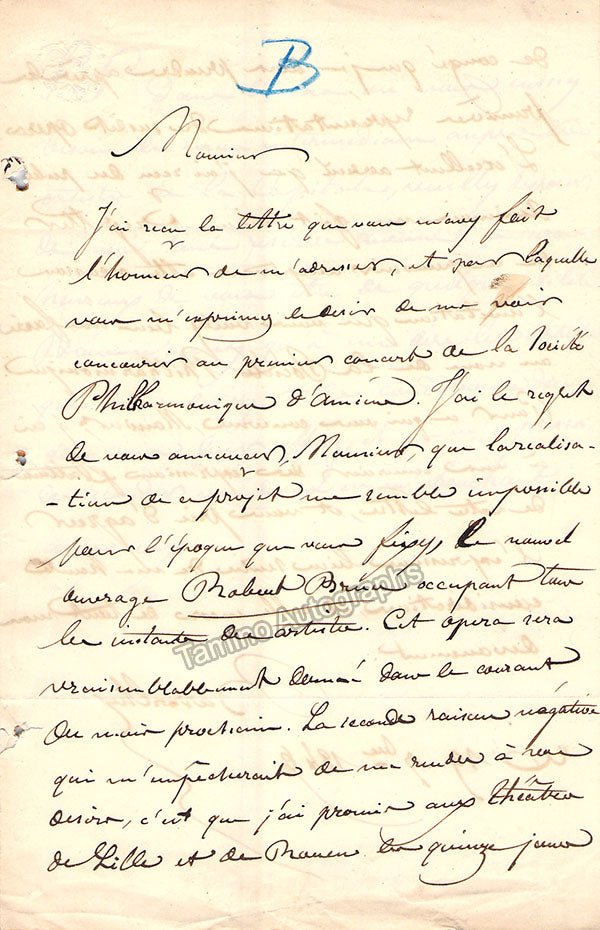 B
Monsieur
J'ai reçu la lettre que vous m'avez fait
l'honneur de m'adresser, et par laquelle
vous m'exprimez le désir de me voir
concourir au premier concert de la Société
Philharmonique d'Amiens. J'ai le regret
de vous annoncer, Monsieur, que la réalisa-
-tion de ce projet me semble impossible
pour l'époque que vous fixez, le nouvel
ouvrage Robert Brüce occupant tous
les instants des artistes. Cet opéra sera
vraisemblablement donné dans le courant
du mois prochain. La seconde raison négative
qui m'empêcherait de me rendre à vos
désirs, c'est que j'ai promis aux théâtres
de Lille et de Rouen les quinze jours
Tamino Autographs